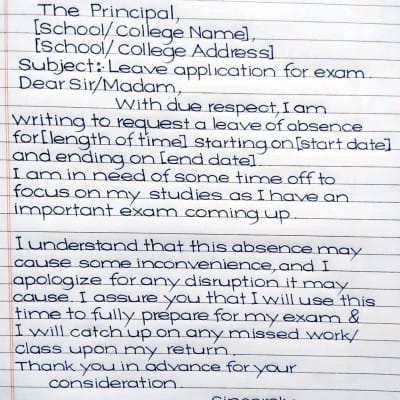 The Principal,
[School/College Name],
[School/College Address]
Subject:- Leave application for exam.
Dear Sir/Madam,
With due respect, I am
writing to request a leave of absence
for [length of time] starting on [start date]
and ending on [end date].
I am in need of some time off to
focus on my studies as I have an
important exam coming up.
I understand that this absence may
cause some inconvenience, and I
apologize for any disruption it may
cause. I assure you that I will use this
time to fully prepare for my exam &
I will catch up on any missed work/
class upon my return.
Thank you in advance for your
consideration.
Sincerely